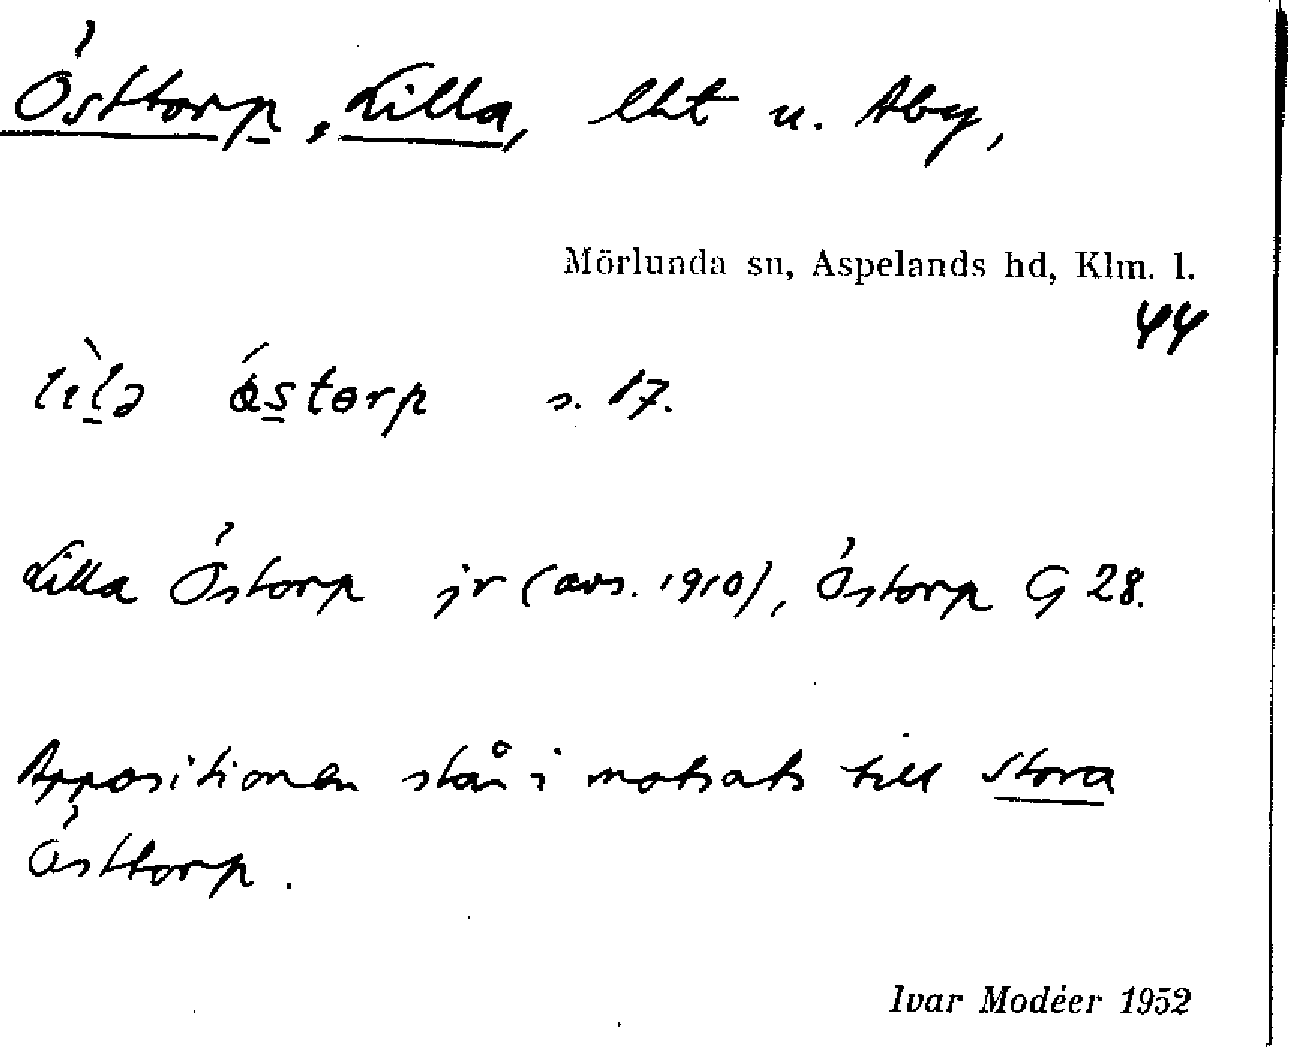 Östtorp, Lilla, lht u. Åby,
Mörlunda sn, Aspelands hd, Klm. l.
44
s. 17.
Lilla Östorp jr (avs. 1910), Östorp G 28.
Appositionen står i motsats till Stora
Östtorp.
Ivar Modéer 1952